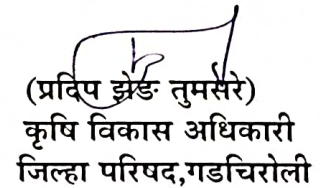 (प्रदिप झेड तुमसरे)
कृषि विकास अधिकारी
जिल्हा परिषद,गडचिरोली